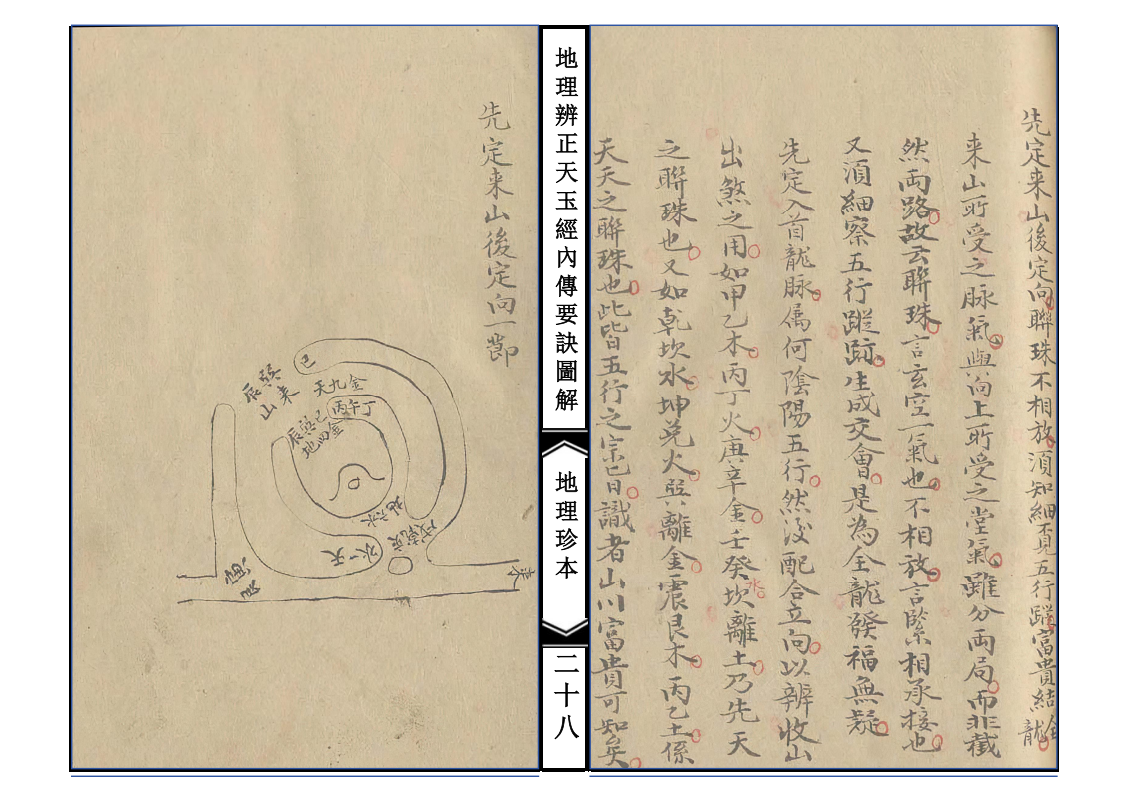 先定来山後定向聯珠不相放湏知細覔五行蹤富貴結全龍
来山所受之脉氣與向上所受之堂氣雖分両局而非截
然両路故云聯珠言玄空一氣也不相放言緊相承接也
又湏細察五行蹤跡生成交會是為全龍發福無疑
先定入首龍脉属何陰陽五行然後配合立向以辨收山
出煞之用如甲乙木丙丁火庚辛金壬癸水坎離土乃先天
之聯珠也又如乾坎水坤兑火巽離金震艮木丙乙土係
天天之聯珠也此皆五行之宗已日識者山川富貴可知矣
地理辨正天玉經內傳要訣圖解
地理珍本
二十八
先定来山後定向一節
辰巽巳
山来
天九金
丙午丁
辰巽巳
地四金
地六水
戌乾亥
天一水